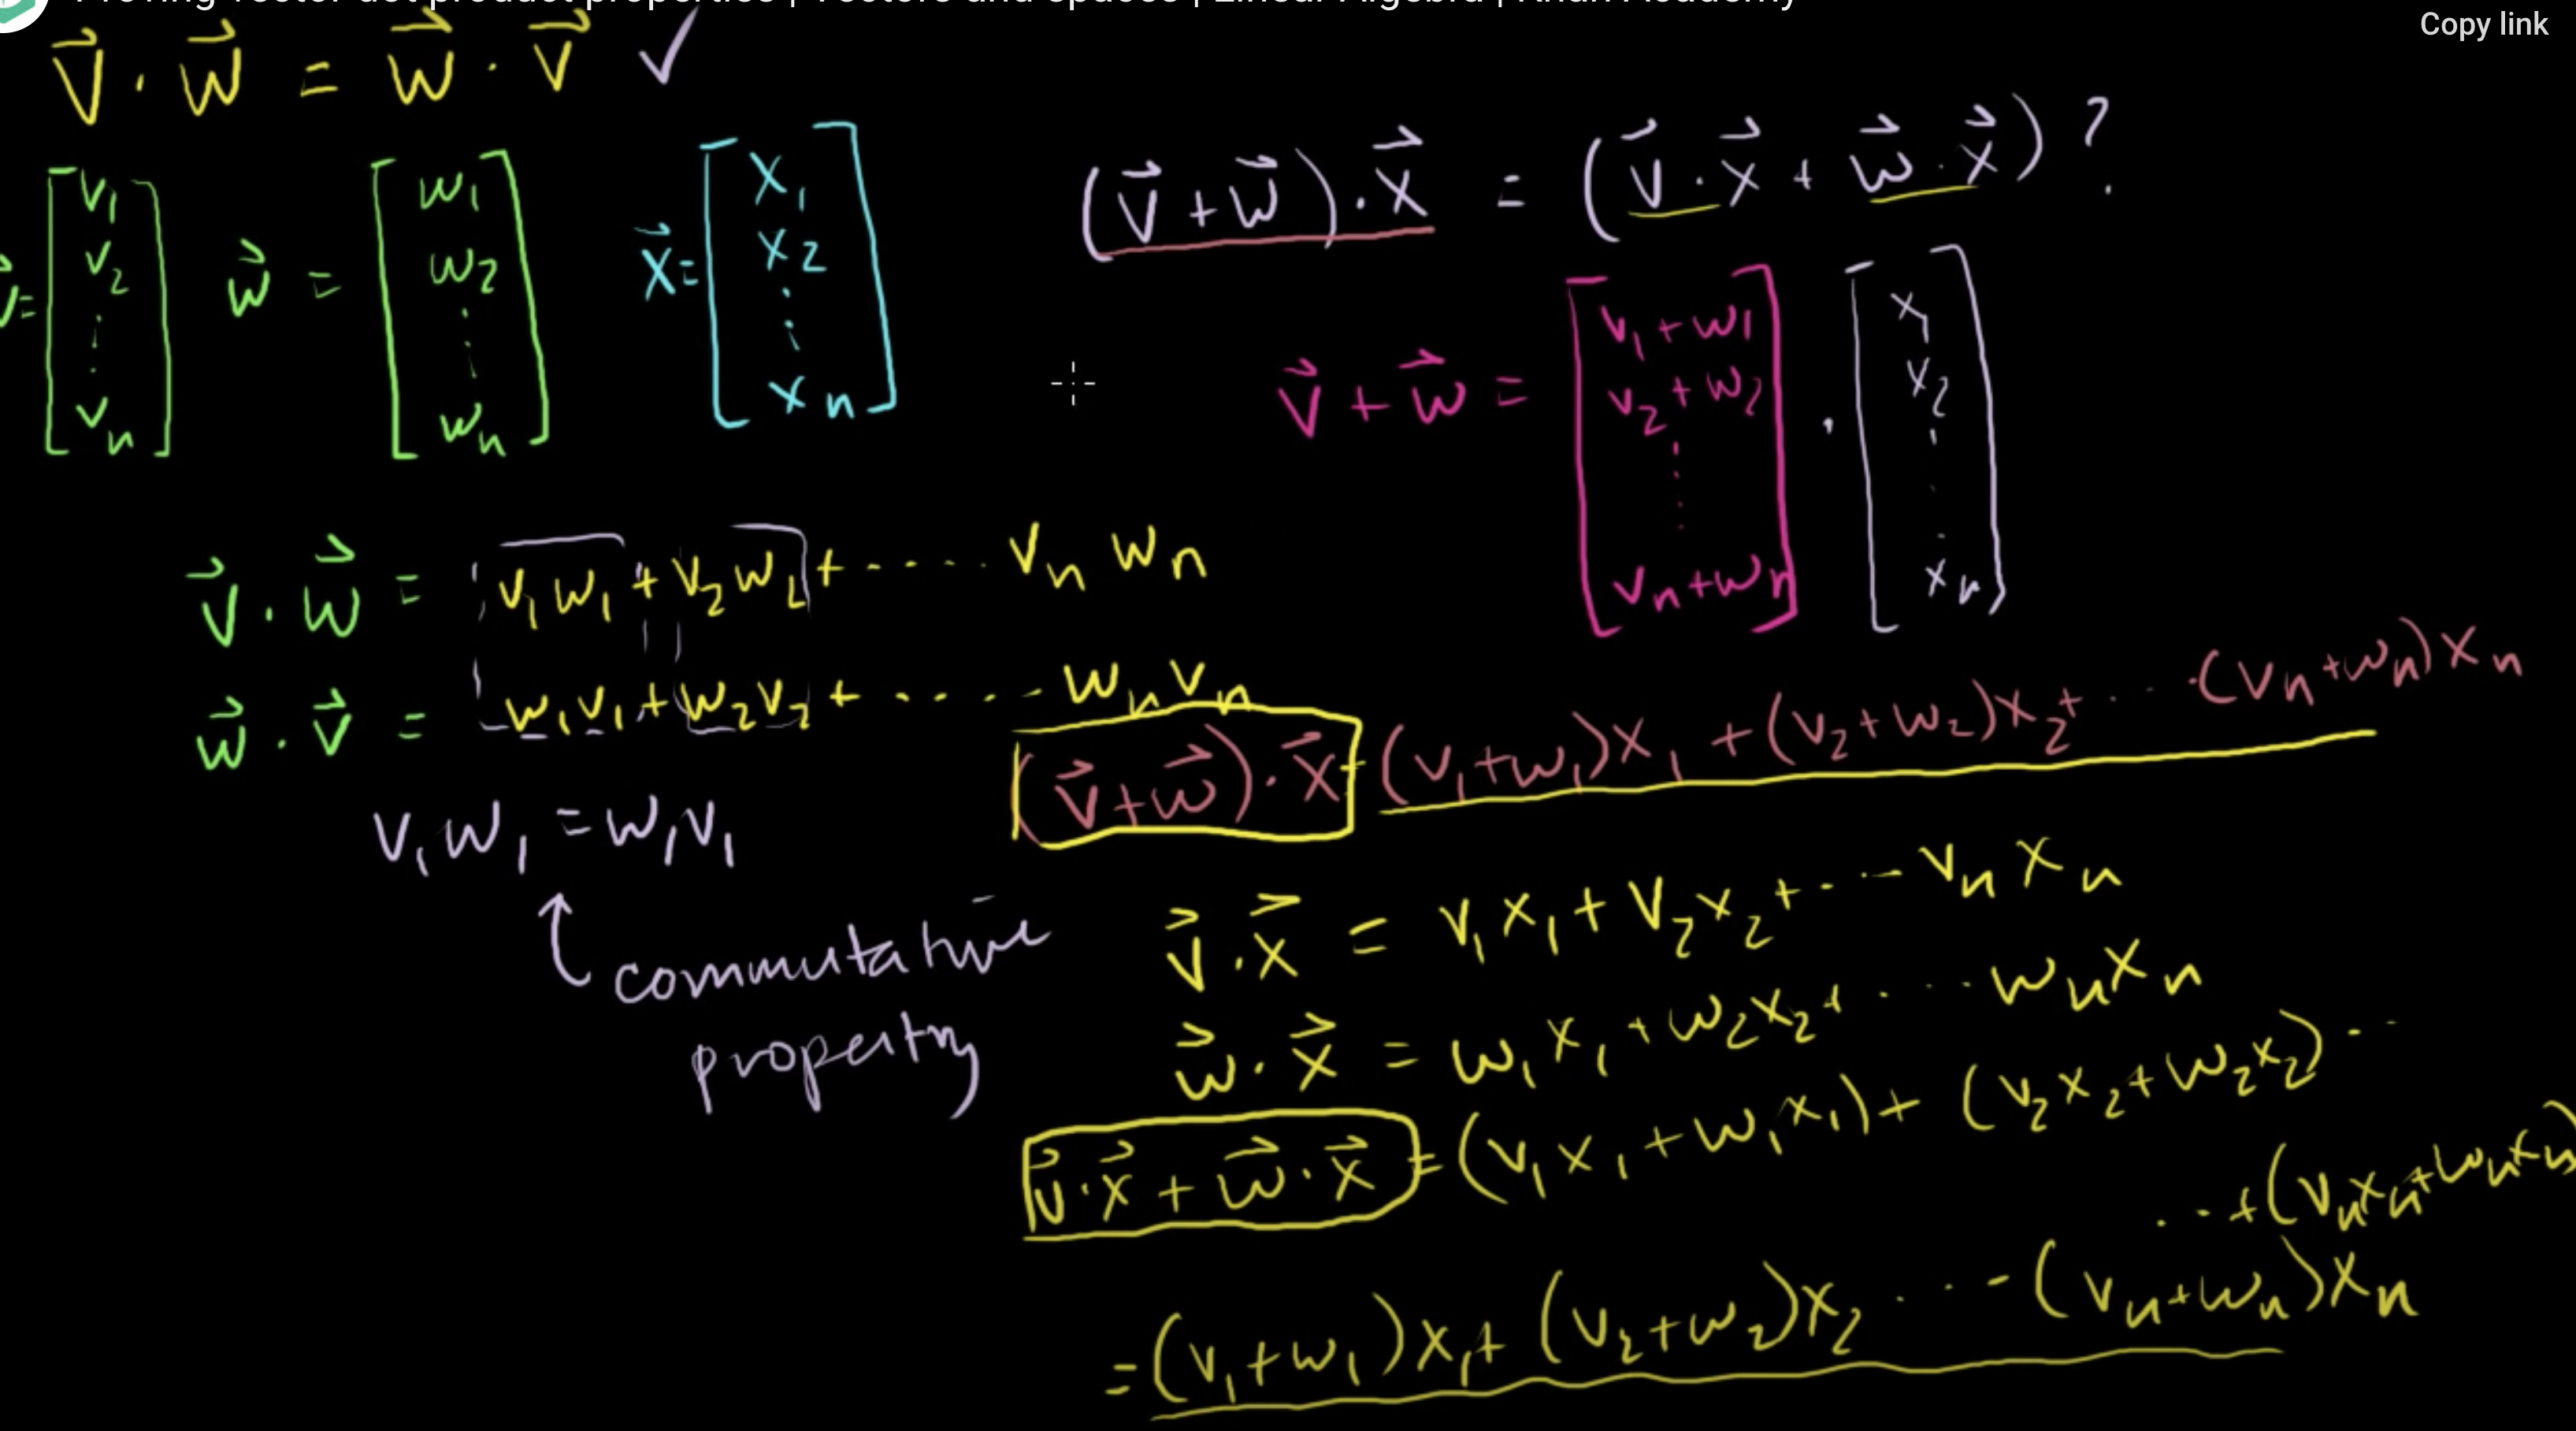 Proving vector dot product properties | Vectors and spaces | Linear Algebra | Khan Academy
Copy link
v⃗ · w⃗ = w⃗ · v⃗ ✓
v⃗ = [v₁ v₂ ⋮ vₙ] w⃗ = [w₁ w₂ ⋮ wₙ] x⃗ = [x₁ x₂ ⋮ xₙ]
(v⃗ + w⃗) · x⃗ = (v⃗ · x⃗ + w⃗ · x⃗) ?
v⃗ + w⃗ = [v₁ + w₁ v₂ + w₂ ⋮ vₙ + wₙ] · [x₁ x₂ ⋮ xₙ]
v⃗ · w⃗ = v₁w₁ + v₂w₂ + ···· vₙwₙ
w⃗ · v⃗ = w₁v₁ + w₂v₂ + ····· wₙvₙ
v₁w₁ = w₁v₁
commutative
property
(v⃗ + w⃗) · x⃗ = (v₁ + w₁)x₁ + (v₂ + w₂)x₂ + ··· (vₙ + wₙ)xₙ
v⃗ · x⃗ = v₁x₁ + v₂x₂ + ··· vₙxₙ
w⃗ · x⃗ = w₁x₁ + w₂x₂ + ··· wₙxₙ
v⃗ · x⃗ + w⃗ · x⃗ = (v₁x₁ + w₁x₁) + (v₂x₂ + w₂x₂) ··
··· + (vₙxₙ + wₙxₙ)
= (v₁ + w₁)x₁ + (v₂ + w₂)x₂ ···· (vₙ + wₙ)xₙ